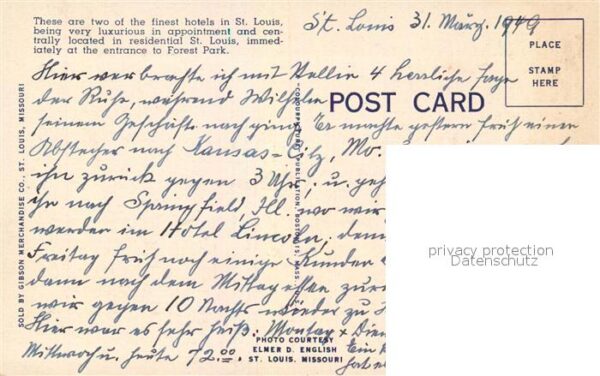 These are two of the finest hotels in St. Louis,
being very luxurious in appointment and cen-
trally located in residential St. Louis, immed-
iately at the entrance to Forest Park.
St. Louis 31. März, 1949
PLACE
STAMP
HERE
Hier verbrachte ich mit Nellie 4 herrliche Tage
der Ruhe, während Wilhelm
POST CARD
seinem Geschäfte nach ging. Er machte gestern früh einen
Abstecher nach Kansas-City, Mo.
ihn zurück gegen 3 Uhr, u.
nach Springfield, Ill. wo wir
werden im Hotel Lincoln,
Freitag früh noch einige Kunden
dann nach dem Mittagessen
wir gegen 10 Nachts wieder zu
Hier war es sehr heiß. Montag &
Mittwoch u. heute 72.00. Ein
hat
SOLD BY GIBSON MERCHANDISE CO., ST. LOUIS, MISSOURI
PHOTO COURTESY
ELMER D. ENGLISH
ST. LOUIS, MISSOURI
privacy protection
Datenschutz